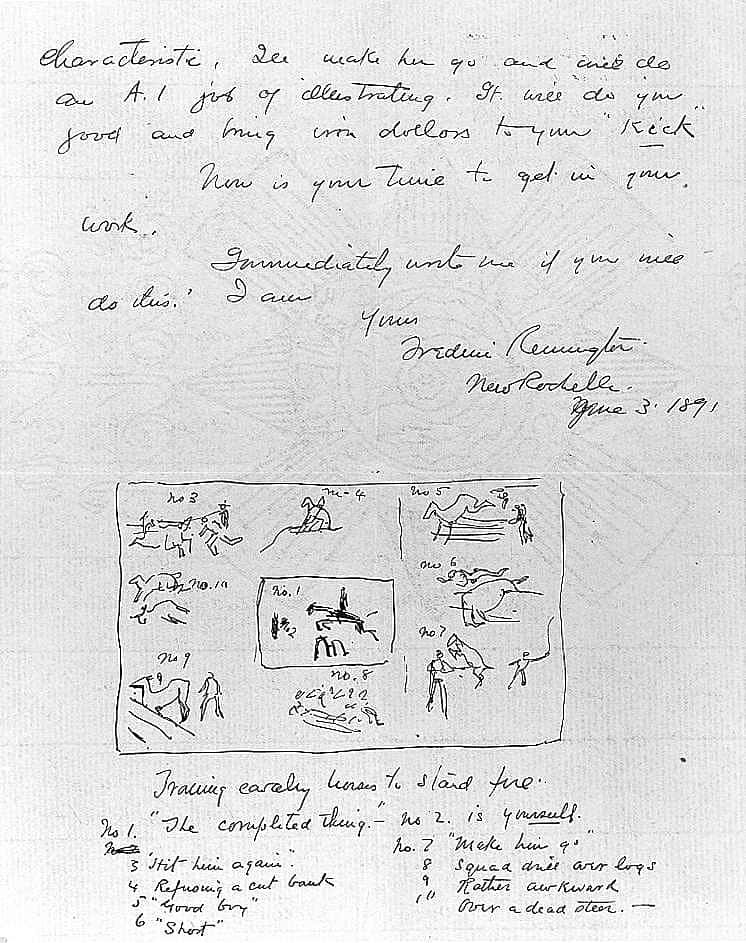 characteristic. I'll make her go and will do
an A.1 job of illustrating. It will do you
good and bring iron dollars to your "Kick"
Now is your time to get in your
work.
Immediately write me if you will
do this. I am
Yours
Frederic Remington.
New Rochelle.
June 3. 1891
no 3
no 4
no 5
no. 10
no. 1
no 2
no 6
no 7
no 9
no. 8
Training cavalry horses to stand fire.
No 1. "The completed thing." — no 2. is yourself.
3 "Hit him again".
4 Refusing a cut bank
5 "Good boy"
6 "Short"
no. 7 "Make him go"
8 Squad drill over logs
9 Rather awkward
10 Over a dead steer. —